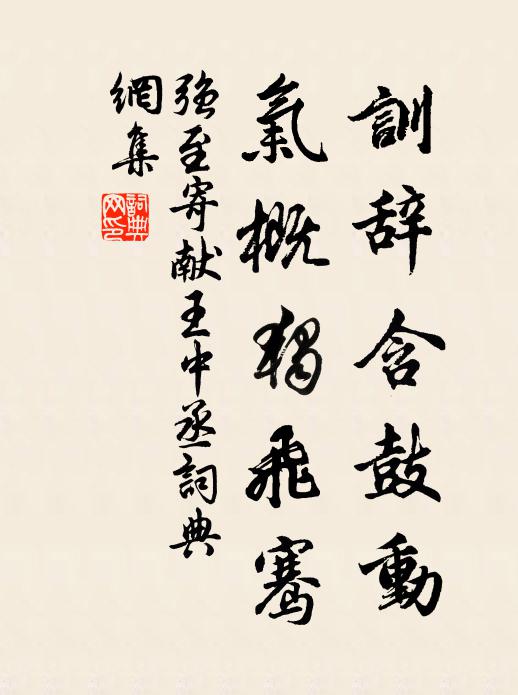 訓辞含鼓動
氣概獨飛騫
强至寄献王中丞詞典
網集
詞典网印